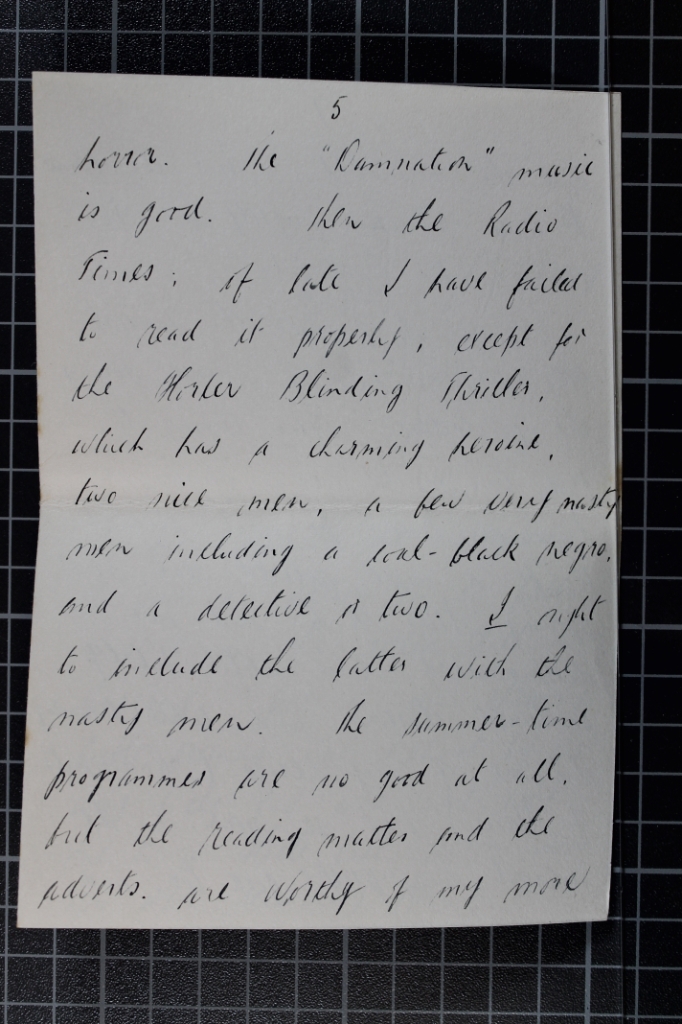 5
horror. The "Damnation" music
is good. Then the Radio
Times; of late I have failed
to read it properly, except for
the Horler Blinding Thriller,
which has a charming heroine,
two nice men, a few very nasty
men including a coal-black negro,
and a detective or two. I ought
to include the latter with the
nasty men. The summer-time
programmes are no good at all,
but the reading matter and the
adverts. are worthy of my more